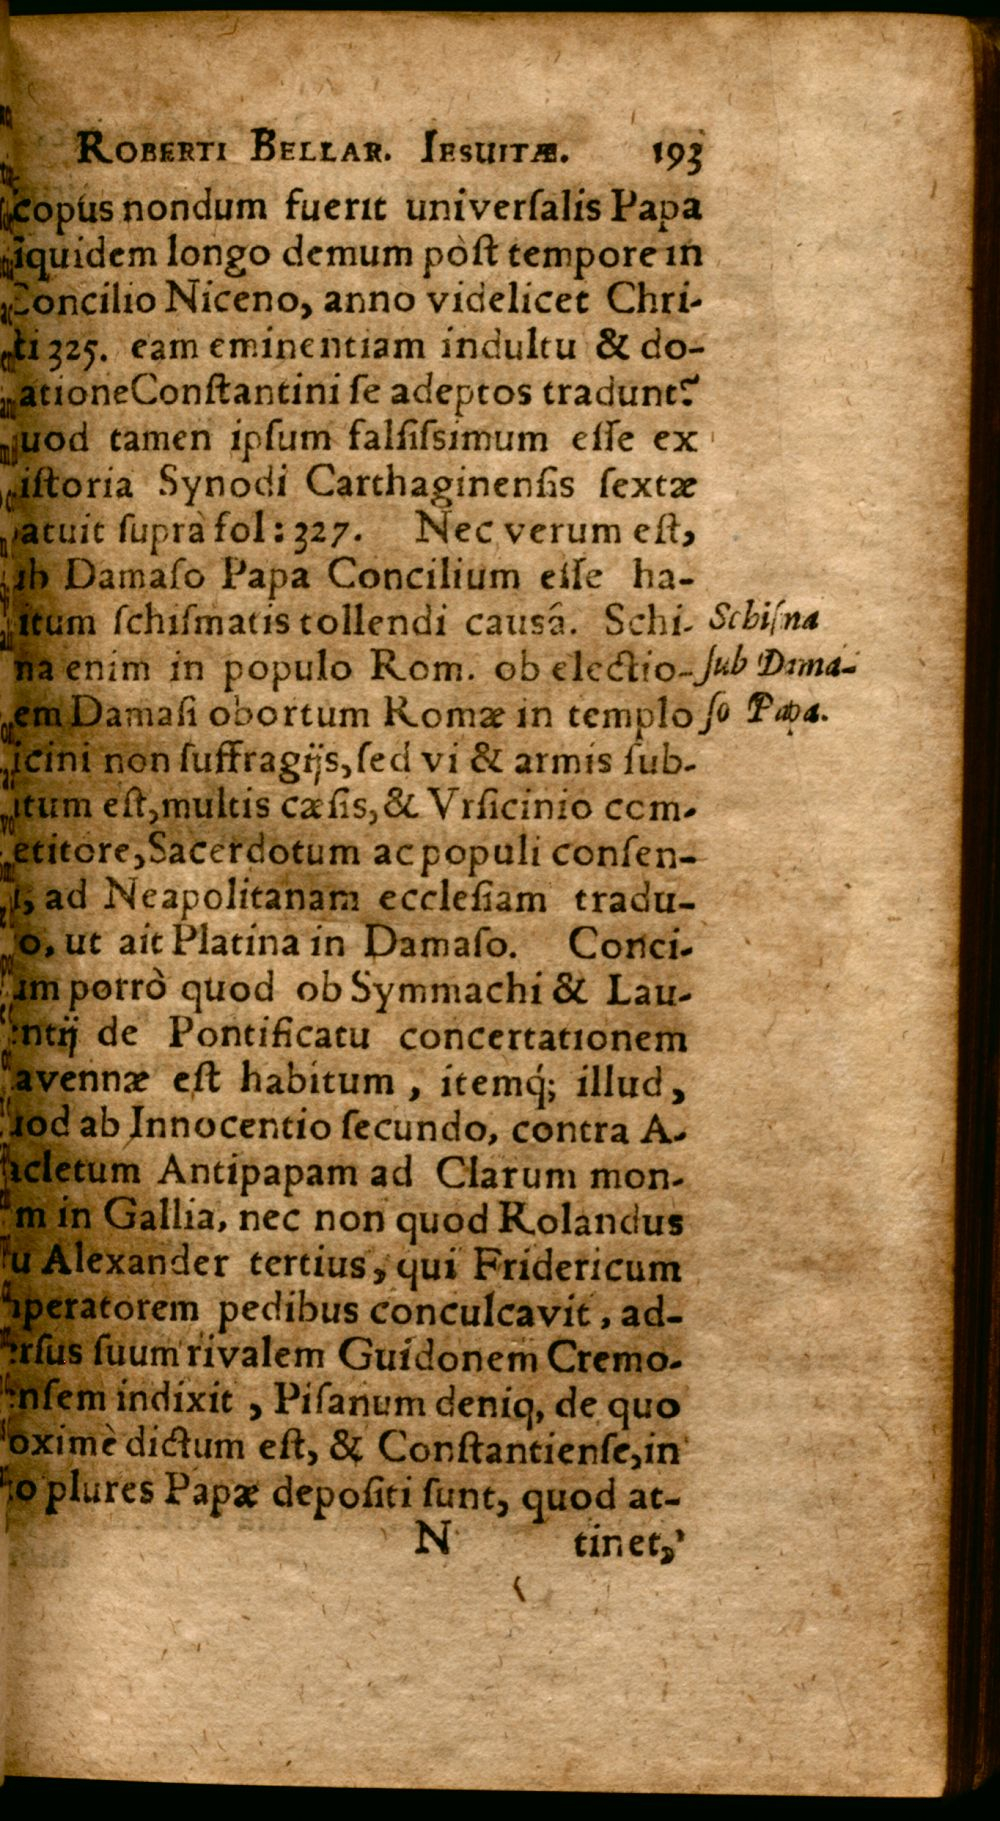 ROBERTI BELLAR. IESUITÆ. 193
copus nondum fuerit univerſalis Papa
iquidem longo demum pòſt tempore in
Concilio Niceno, anno videlicet Chri-
ti 325. eam eminentiam indultu & do-
atione Conſtantini ſe adeptos tradunt?
uod tamen ipſum falſiſsimum eſſe ex
iſtoria Synodi Carthaginenſis ſextæ
atuit ſuprà fol: 327. Nec verum eſt,
ab Damaſo Papa Concilium eſſe ha-
itum ſchiſmatis tollendi causâ. Schi-
na enim in populo Rom. ob electio-
em Damaſi obortum Romæ in templo
icini non ſuffragijs, ſed vi & armis ſub-
itum eſt, multis cæſis, & Vrſicinio com-
etitore, Sacerdotum ac populi conſen-
i, ad Neapolitanam eccleſiam tradu-
o, ut ait Platina in Damaſo. Conci-
um porrò quod ob Symmachi & Lau-
entij de Pontificatu concertationem
avennæ eſt habitum, itemq́; illud,
uod ab Innocentio ſecundo, contra A-
acletum Antipapam ad Clarum mon-
m in Gallia, nec non quod Rolandus
u Alexander tertius, qui Fridericum
mperatorem pedibus conculcavit, ad-
erſus ſuum rivalem Guidonem Cremo-
enſem indixit, Piſanum deniq, de quo
oximè dictum eſt, & Conſtantienſe, in
o plures Papæ depoſiti ſunt, quod at-
N tinet,
Schiſna
ſub Dama-
ſo Papa.